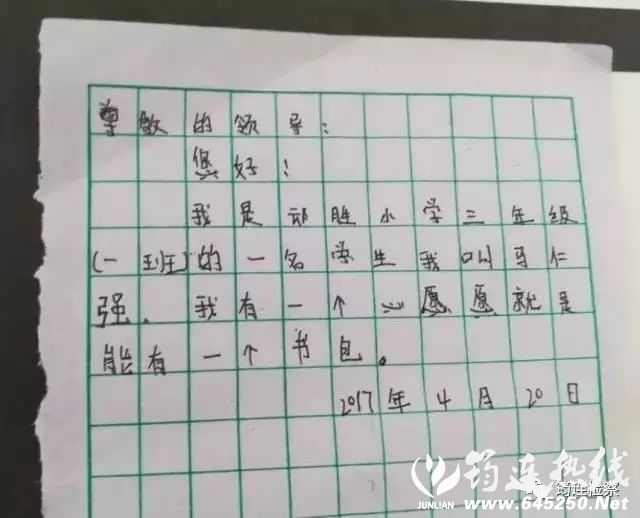 尊敬的领导：
您好！
我是动胜小学三年级
(一班)的一名学生我叫马仁
强. 我有一个心愿愿就是
能有一个书包。
2017年4月20日
筠连热线
JUNLIAN www.645250.Net
筠连检察